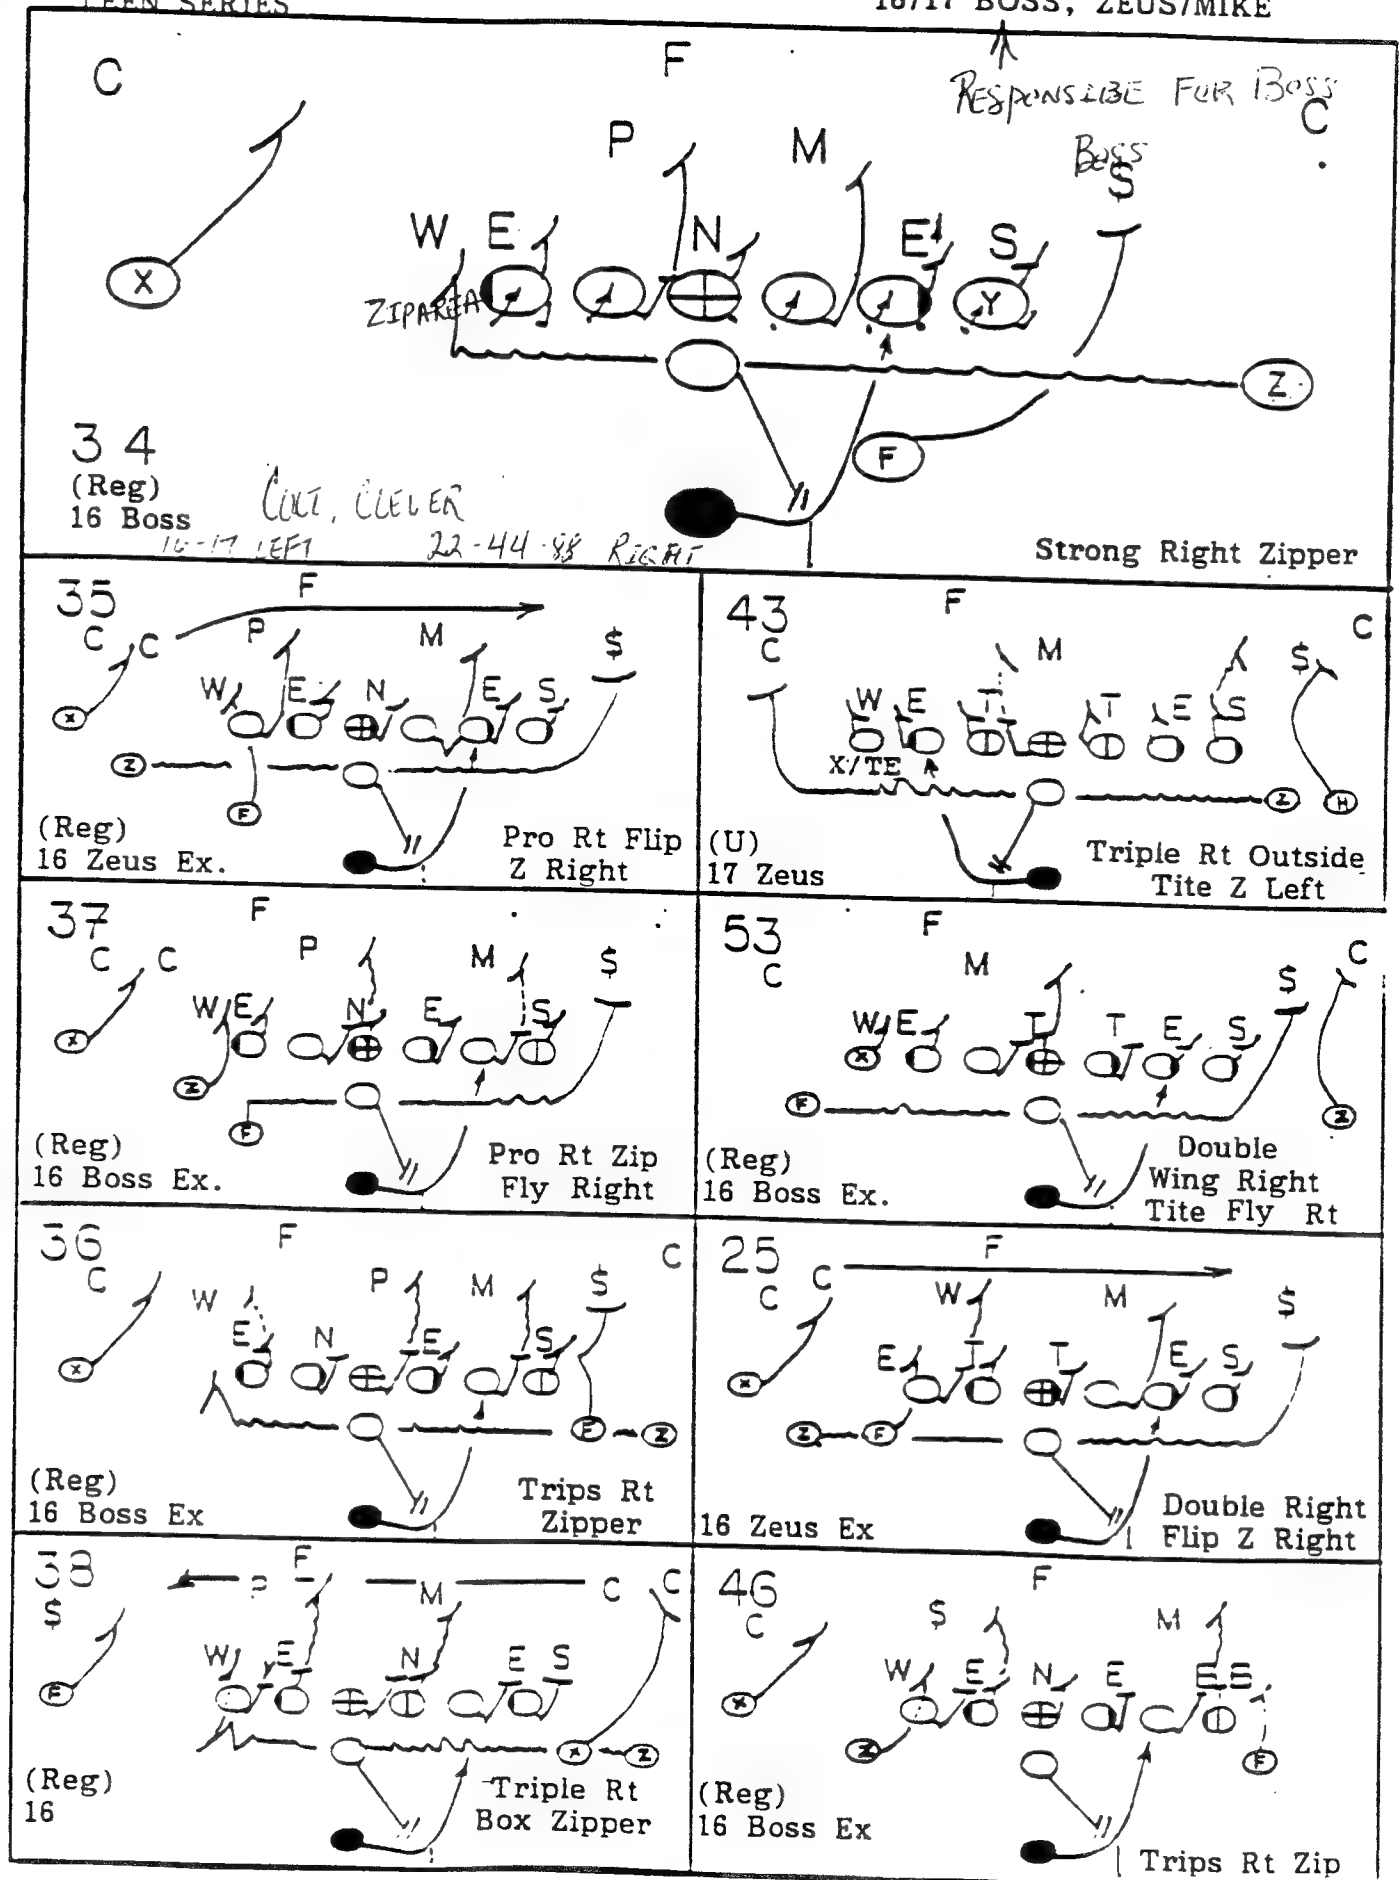 TEEN SERIES
16/17 BOSS, ZEUS/MIKE
C F
RESPONSIBE FOR BOSS
C
P M
BOSS
$
W E N E S
X
ZIPAREA
Y
Z
F
34
(Reg)
16 Boss
COLT, CLEVER
16-17 LEFT 22-44-88 RIGHT
Strong Right Zipper
35
F
C C P M $
W E N E S
X
Z
F
(Reg)
16 Zeus Ex.
Pro Rt Flip
Z Right
43
F C
C M $
W E T T E S
X/TE
Z H
(U)
17 Zeus
Triple Rt Outside
Tite Z Left
37
F
C C P M $
W E N E S
X
Z
F
(Reg)
16 Boss Ex.
Pro Rt Zip
Fly Right
53
F
C M $ C
W E T T E S
X
F Z
(Reg)
16 Boss Ex.
Double
Wing Right
Tite Fly Rt
36
F C
C W P M $
E N E S
X
F Z
(Reg)
16 Boss Ex
Trips Rt
Zipper
25
F
C C W M $
E T T E S
X
Z F
16 Zeus Ex
Double Right
Flip Z Right
38
F
$ P M C C
W E N E S
F
X Z
(Reg)
16
Triple Rt
Box Zipper
46
F
C $ M
W E N E E
X
Z F
(Reg)
16 Boss Ex
Trips Rt Zip